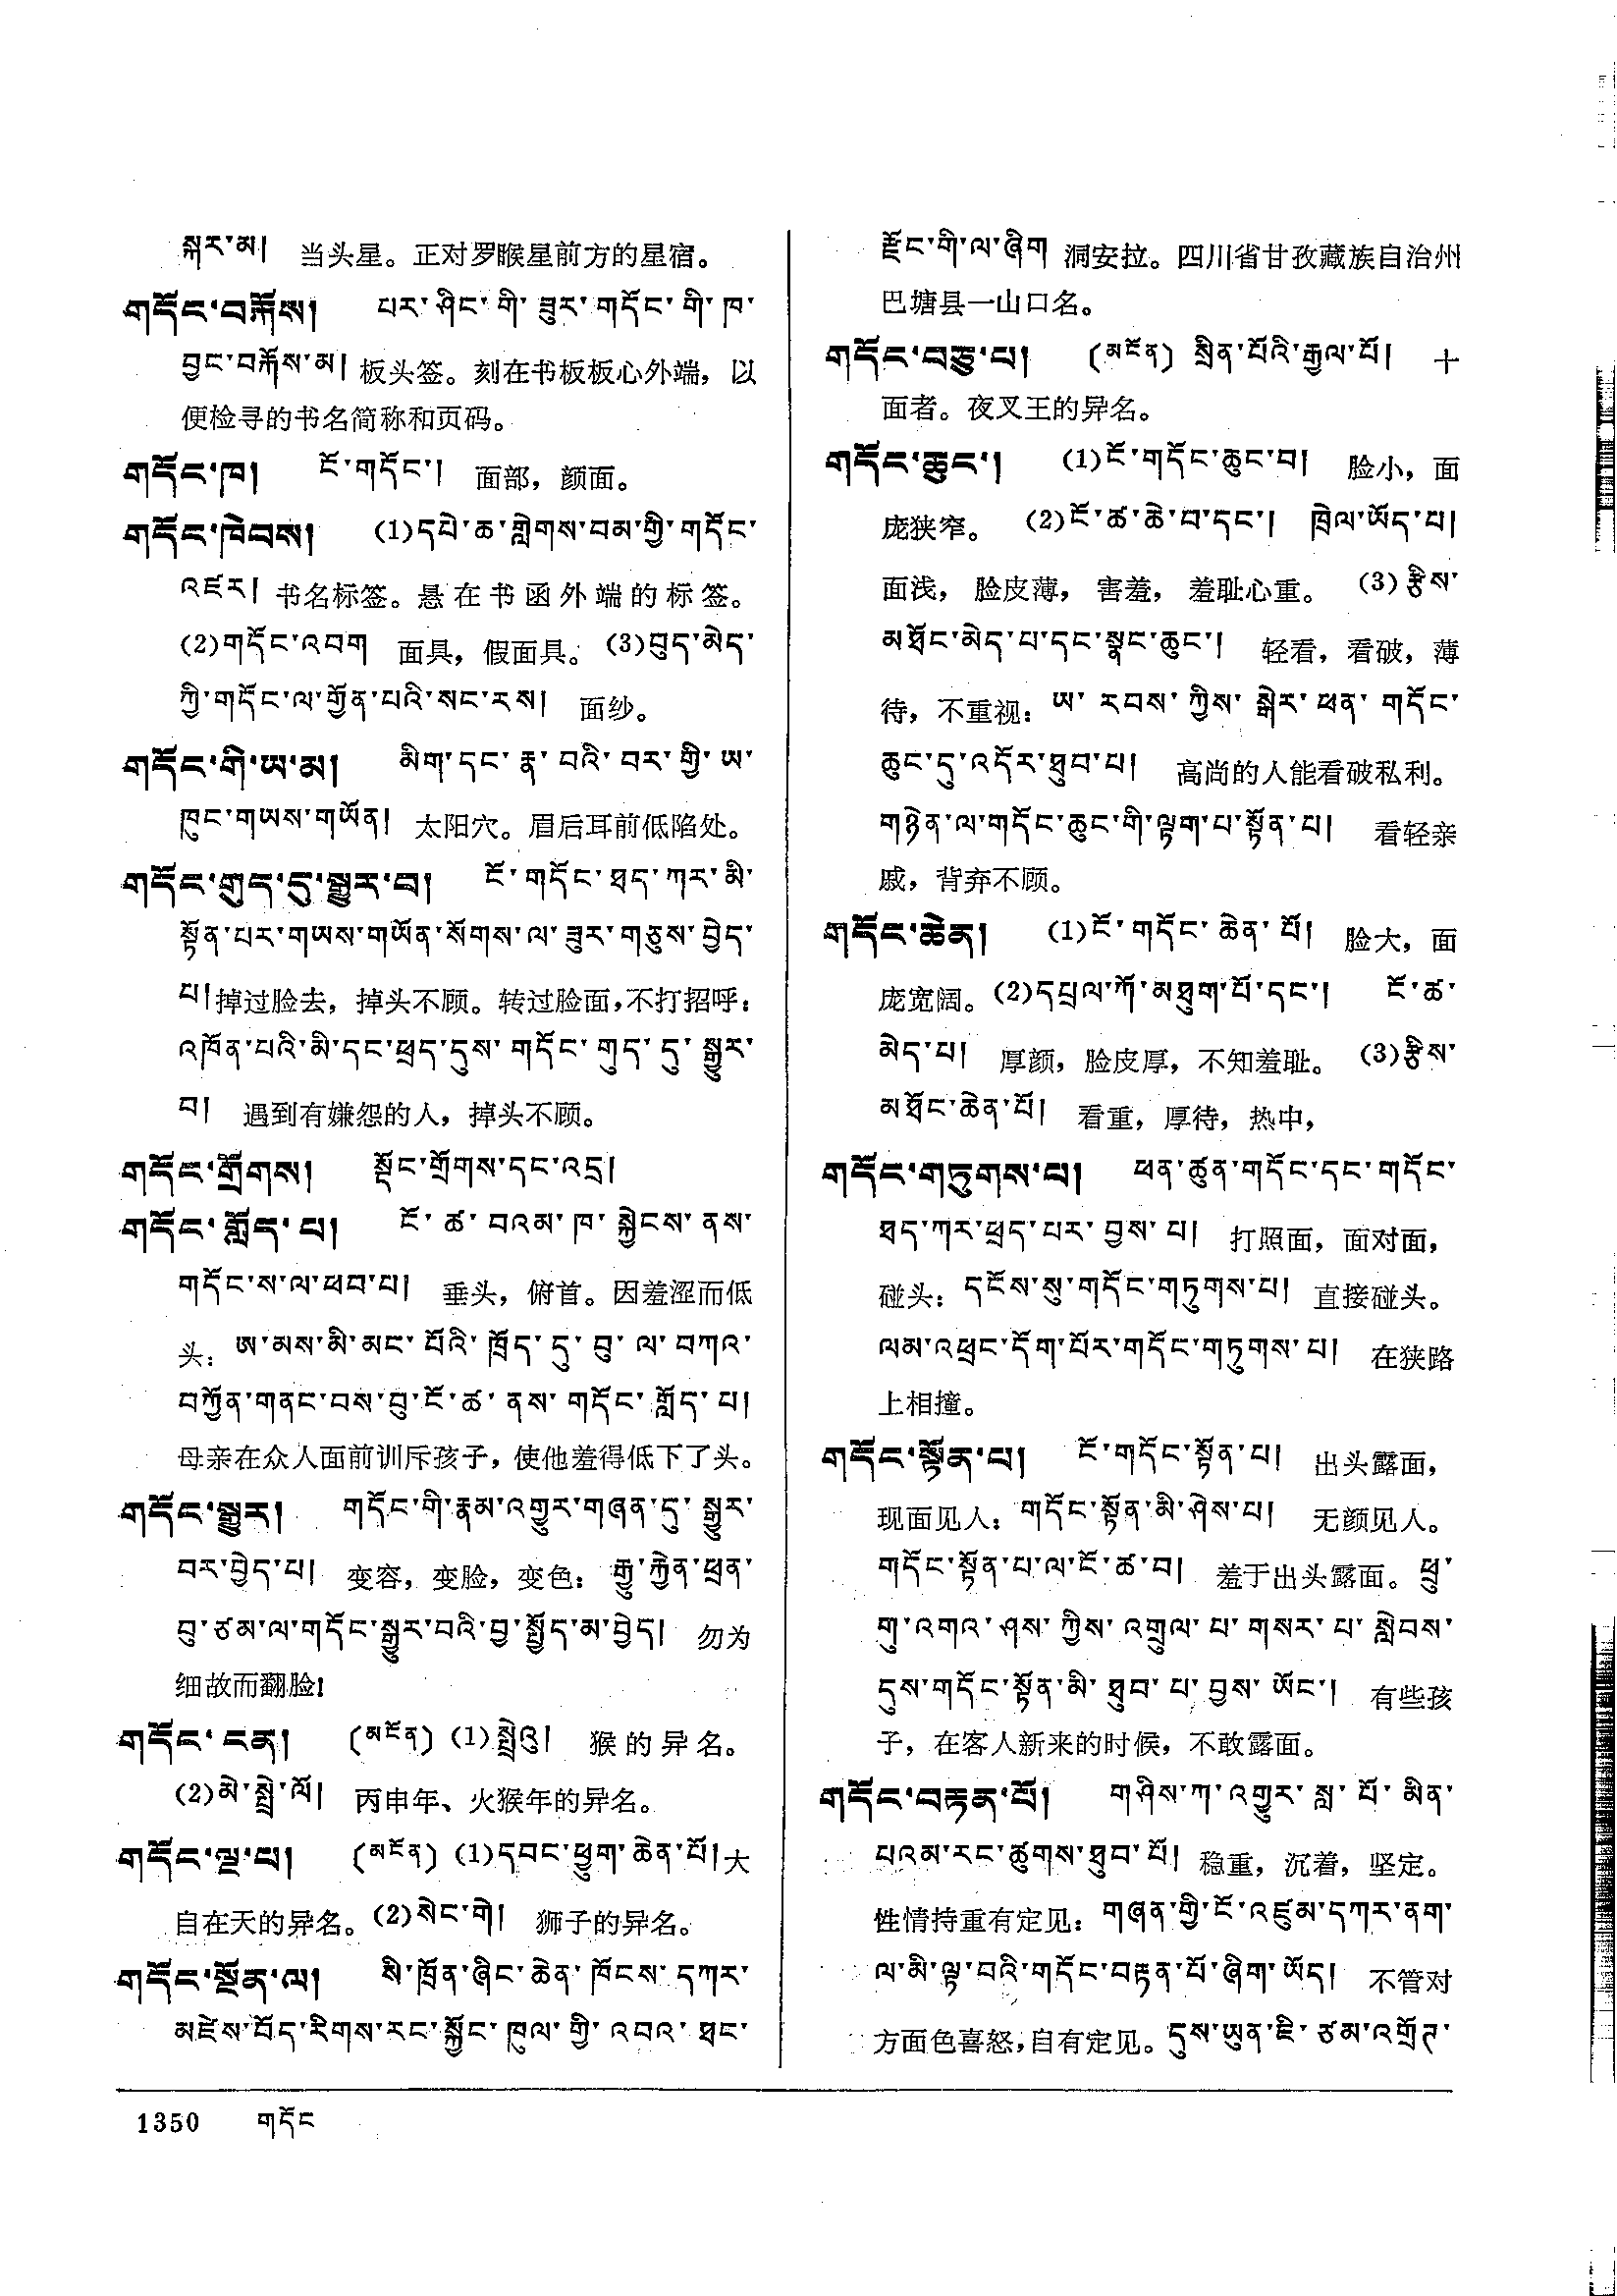 སྐར་མ། 当头星。正对罗睺星前方的星宿。
གདོང་བརྐོས། པར་ཤིང་གི་ཟུར་གདོང་གི་ཁ་
བྱང་བརྐོས་མ། 板头签。刻在书板板心外端，以
便检寻的书名简称和页码。
གདོང་ཁ། ངོ་གདོང་། 面部，颜面。
གདོང་ཁེབས། (1)དཔེ་ཆ་གླེགས་བམ་གྱི་གདོང་
འཛར། 书名标签。悬在书函外端的标签。
(2)གདོང་འབག 面具，假面具。(3)བུད་མེད་
ཀྱི་གདོང་ལ་གྱོན་པའི་སང་རས། 面纱。
གདོང་གི་ཨ་མ། མིག་དང་རྣ་བའི་བར་གྱི་ཨ་
ཁུང་གཡས་གཡོན། 太阳穴。眉后耳前低陷处。
གདོང་གུད་དུ་སྒྱུར་བ། ངོ་གདོང་ཐད་ཀར་མི་
སྟོན་པར་གཡས་གཡོན་སོགས་ལ་ཟུར་གཅུས་བྱེད་
པ། 掉过脸去，掉头不顾。转过脸面，不打招呼：
འཁོན་པའི་མི་དང་ཕྲད་དུས་གདོང་གུད་དུ་སྒྱུར་
བ། 遇到有嫌怨的人，掉头不顾。
གདོང་གྲོགས། སྡོང་གྲོགས་དང་འདྲ།
གདོང་གློད་པ། ངོ་ཚ་བའམ་ཁ་སྐྱེངས་ནས་
གདོང་ས་ལ་ཕབ་པ། 垂头，俯首。因羞涩而低
头：ཨ་མས་མི་མང་པོའི་ཁྲོད་དུ་བུ་ལ་བཀའ་
བཀྱོན་གནང་བས་བུ་ངོ་ཚ་ནས་གདོང་གློད་པ།
母亲在众人面前训斥孩子，使他羞得低下了头。
གདོང་སྒྱུར། གདོང་གི་རྣམ་འགྱུར་གཞན་དུ་སྒྱུར་
བར་བྱེད་པ། 变容，变脸，变色：རྒྱུ་རྐྱེན་ཕྲན་
བུ་ཙམ་ལ་གདོང་སྒྱུར་བའི་བྱ་སྤྱོད་མ་བྱེད། 勿为
细故而翻脸！
གདོང་ངན། (མངོན) (1)སྤྲེའུ། 猴的异名。
(2)མེ་སྤྲེ་ལོ། 丙申年、火猴年的异名。
གདོང་ལྔ་པ། (མངོན) (1)དབང་ཕྱུག་ཆེན་པོ། 大
自在天的异名。(2)སེང་གེ། 狮子的异名。
གདོང་སྔོན་ལ། སི་ཁྲོན་ཞིང་ཆེན་ཁོངས་དཀར་
མཛེས་བོད་རིགས་རང་སྐྱོང་ཁུལ་གྱི་འབའ་ཐང་
རྫོང་གི་ལ་ཞིག 洞安拉。四川省甘孜藏族自治州
巴塘县一山口名。
གདོང་བཅུ་པ། (མངོན) སྲིན་པོའི་རྒྱལ་པོ། 十
面者。夜叉王的异名。
གདོང་ཆུང་། (1)ངོ་གདོང་ཆུང་བ། 脸小，面
庞狭窄。(2)ངོ་ཚ་ཆེ་བ་དང་། ཁྲེལ་ཡོད་པ།
面浅，脸皮薄，害羞，羞耻心重。(3)རྩིས་
མཐོང་མེད་པ་དང་སྣང་ཆུང་། 轻看，看破，薄
待，不重视：ཨ་རབས་ཀྱིས་སྒེར་ཕན་གདོང་
ཆུང་དུ་འདོར་ཐུབ་པ། 高尚的人能看破私利。
གཉེན་ལ་གདོང་ཆུང་གི་ལྟག་པ་སྟོན་པ། 看轻亲
戚，背弃不顾。
གདོང་ཆེན། (1)ངོ་གདོང་ཆེན་པོ། 脸大，面
庞宽阔。(2)དཔྲལ་ཀོ་མཐུག་པོ་དང་། ངོ་ཚ་
མེད་པ། 厚颜，脸皮厚，不知羞耻。(3)རྩིས་
མཐོང་ཆེན་པོ། 看重，厚待，热中，
གདོང་གཏུགས་པ། ཕན་ཚུན་གདོང་དང་གདོང་
ཐད་ཀར་ཕྲད་པར་བྱས་པ། 打照面，面对面，
碰头：དངོས་སུ་གདོང་གཏུགས་པ། 直接碰头。
ལམ་འཕྲང་དོག་པོར་གདོང་གཏུགས་པ། 在狭路
上相撞。
གདོང་སྟོན་པ། ངོ་གདོང་སྟོན་པ། 出头露面，
现面见人：གདོང་སྟོན་མི་ཤེས་པ། 无颜见人。
གདོང་སྟོན་པ་ལ་ངོ་ཚ་བ། 羞于出头露面。ཕྲུ་
གུ་འགའ་ཤས་ཀྱིས་འགྲུལ་པ་གསར་པ་སླེབས་
དུས་གདོང་སྟོན་མི་ཐུབ་པ་བྱས་ཡོང་། 有些孩
子，在客人新来的时候，不敢露面。
གདོང་བརྟན་པོ། གཤིས་ཀ་འགྱུར་སླ་པོ་མིན་
པའམ་རང་ཚུགས་ཐུབ་པོ། 稳重，沉着，坚定。
性情持重有定见：གཞན་གྱི་ངོ་འཛུམ་དཀར་ནག་
ལ་མི་ལྟ་བའི་གདོང་བརྟན་པོ་ཞིག་ཡོད། 不管对
方面色喜怒，自有定见。དུས་ཡུན་ཇི་ཙམ་འགྲོའང་
1350 གདོང